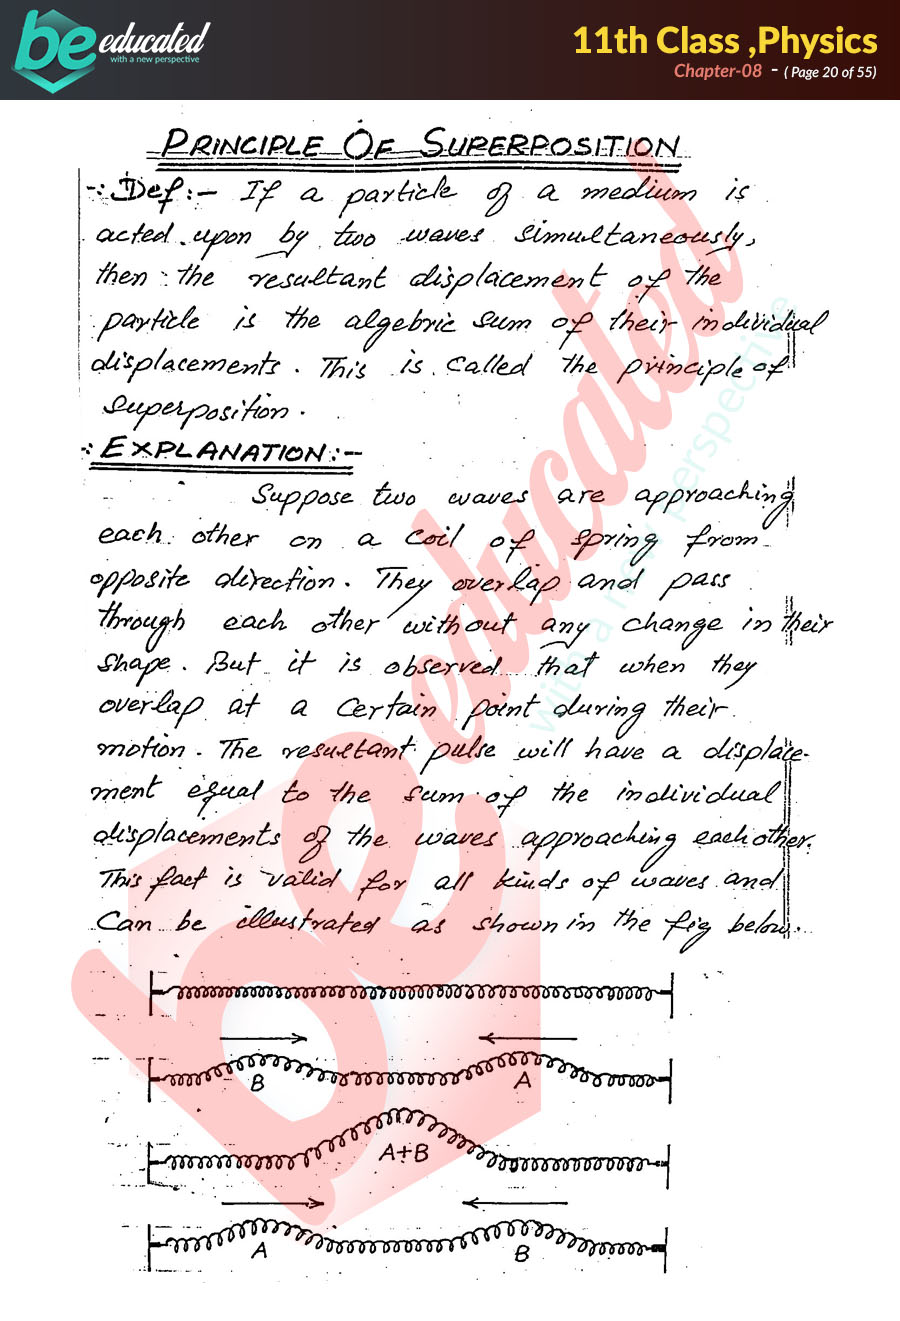 be educated
with a new perspective
11th Class ,Physics
Chapter-08 - ( Page 20 of 55)
PRINCIPLE OF SUPERPOSITION
Def:- If a particle of a medium is
acted upon by two waves simultaneously,
then the resultant displacement of the
particle is the algebric sum of their individual
displacements. This is called the principle of
superposition.
EXPLANATION:-
Suppose two waves are approaching
each other on a coil of spring from
opposite direction. They overlap and pass
through each other without any change in their
shape. But it is observed that when they
overlap at a certain point during their
motion. The resultant pulse will have a displace-
ment equal to the sum of the individual
displacements of the waves approaching each other.
This fact is valid for all kinds of waves and
Can be illustrated as shown in the fig below.
B A
A+B
A B
be educated
with a new perspective